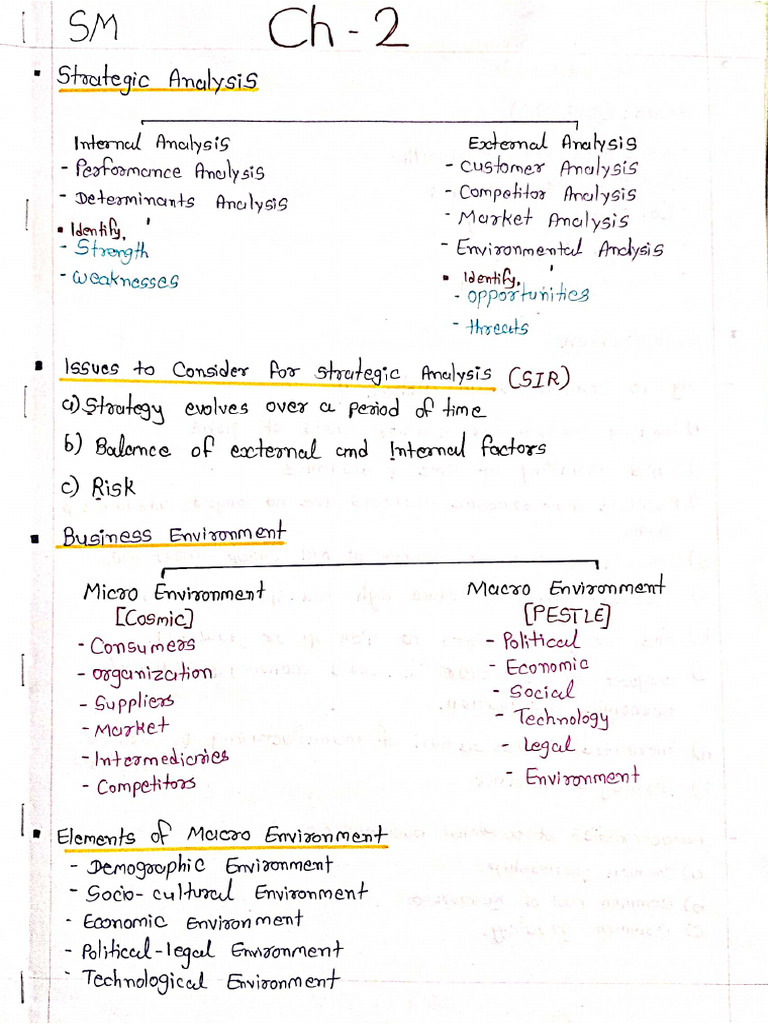 SM Ch - 2
▪ Strategic Analysis
Internal Analysis
- Performance Analysis
- Determinants Analysis
• Identify,
- Strength
- Weaknesses
External Analysis
- Customer Analysis
- Competitor Analysis
- Market Analysis
- Environmental Analysis
▪ Identify,
- opportunities
- threats
▪ Issues to Consider for Strategic Analysis (SIR)
a) Strategy evolves over a period of time
b) Balance of external and Internal factors
c) Risk
▪ Business Environment
Micro Environment
[Cosmic]
- Consumers
- organization
- Suppliers
- Market
- Intermediaries
- Competitors
Macro Environment
[PESTLE]
- Political
- Economic
- Social
- Technology
- Legal
- Environment
▪ Elements of Macro Environment
- Demographic Environment
- Socio-cultural Environment
- Economic Environment
- Political-legal Environment
- Technological Environment